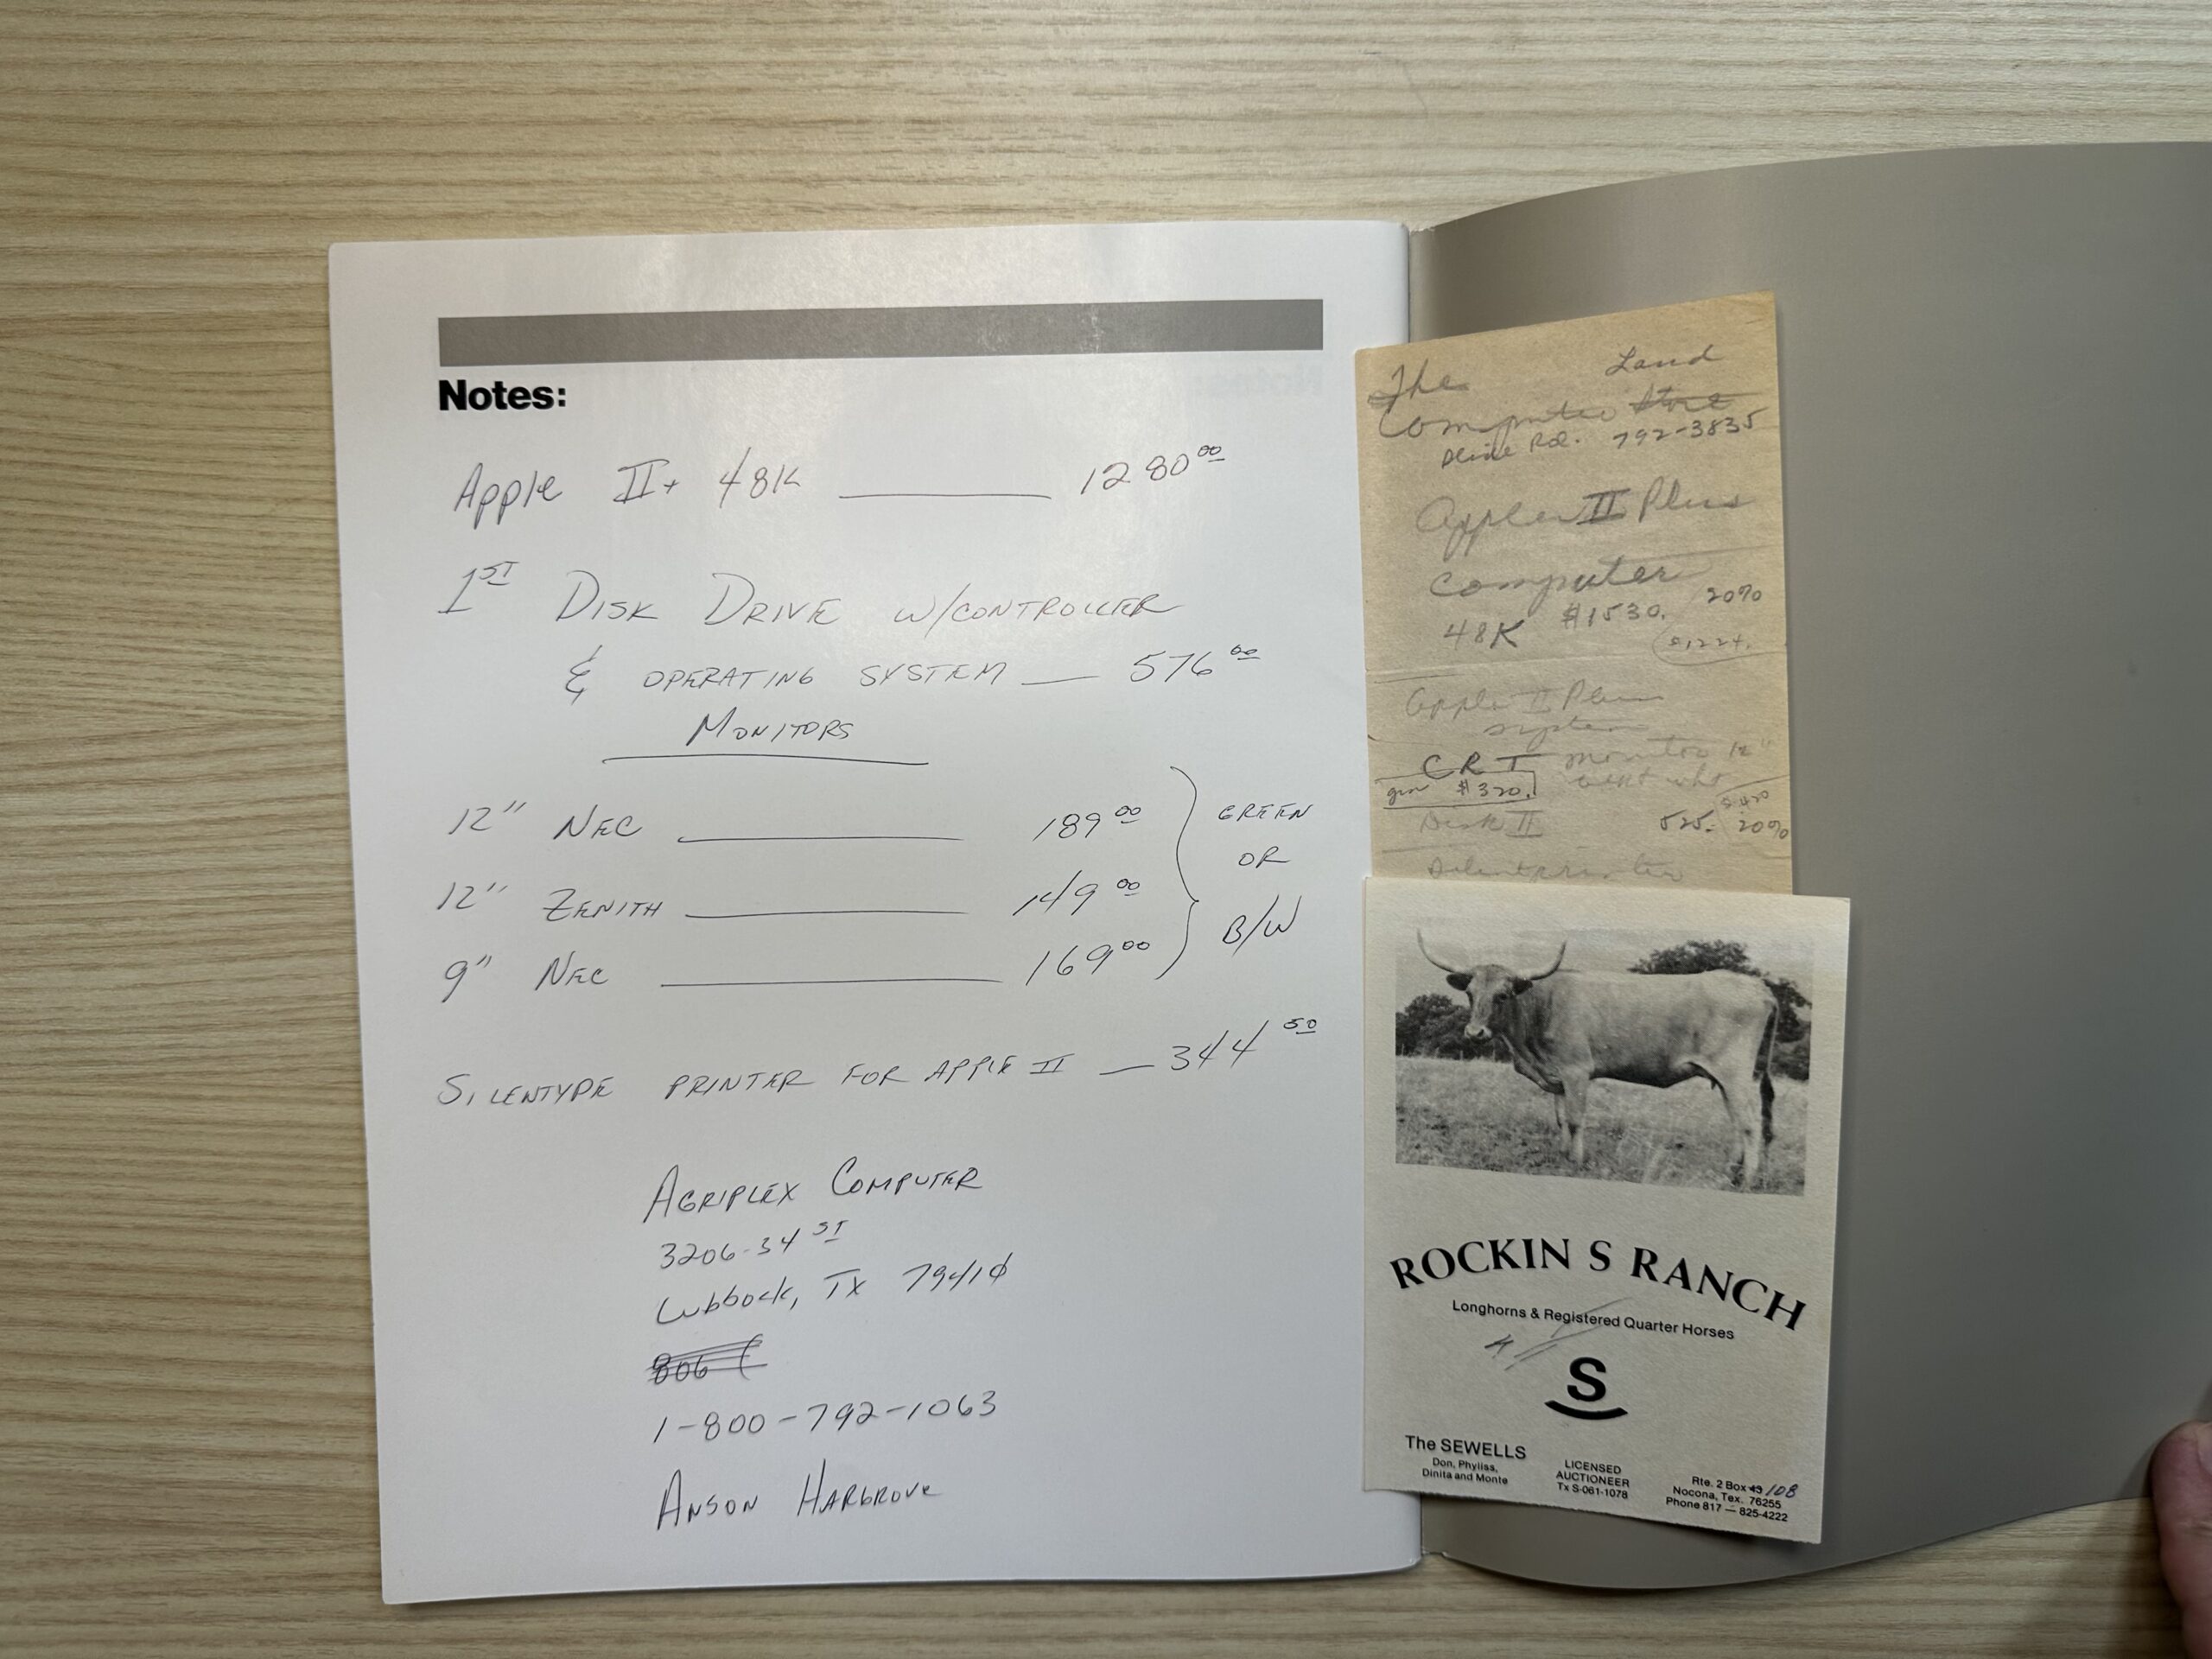 Notes:
Apple II+ 48K ——— 1280.00
1ST DISK DRIVE W/CONTROLLER
& OPERATING SYSTEM — 576.00
MONITORS
12" NEC ——— 189.00
12" ZENITH ——— 149.00
9" NEC ——— 169.00
GREEN
OR
B/W
SILENTYPE PRINTER FOR APPLE II — 344.50
AGRIPLEX COMPUTER
3206-34 ST
Lubbock, TX 79410
806 (
1-800-792-1063
ANSON HARGROVE
The Land
Computer Store
Slide Rd. 792-3835
Apple II Plus
Computer
20%
48K $1530.
$1224.
Apple II Plus
system
CRT monitor 12"
grn $320.
wht
$420
Disk II 525. 20%
ROCKIN S RANCH
Longhorns & Registered Quarter Horses
S
The SEWELLS
Don, Phyliss,
Dinita and Monte
LICENSED
AUCTIONEER
Tx S-061-1078
Rte. 2 Box 43 108
Nocona, Tex. 76255
Phone 817 — 825-4222